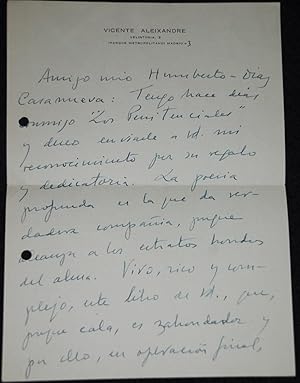 VICENTE ALEIXANDRE
VELINTONIA, 3
(PARQUE METROPOLITANO) MADRID 3
Amigo mio Humberto-Diaz
Casanueva: Tengo hace dias
conmigo "Los Penitenciales"
y deseo enviarle a Vd. mi
reconocimiento por su regalo
y dedicatoria. La poesia
profunda es la que da ver-
dadera compañia, porque
alcanza a los estratos hondos
del alma. Vivo, rico y com-
plejo, este libro de Vd., que,
porque cala, es zahondador y
por ello, en operación final,